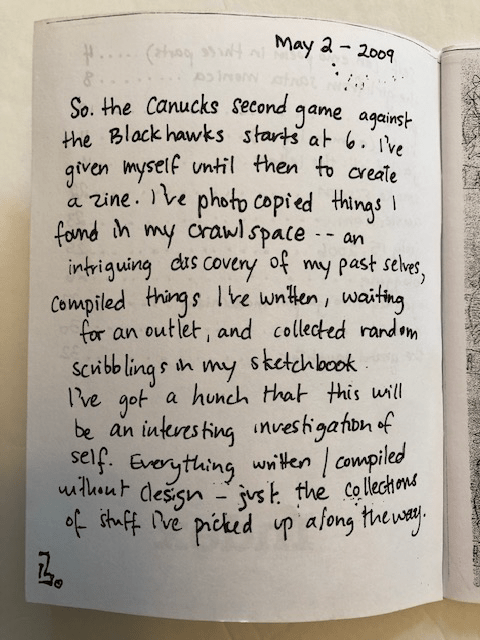 May 2 - 2009
So. the Canucks second game against
the Blackhawks starts at 6. I've
given myself until then to create
a zine. I've photocopied things I
found in my crawlspace -- an
intriguing discovery of my past selves,
compiled things I've written, waiting
for an outlet, and collected random
scribblings in my sketchbook.
I've got a hunch that this will
be an interesting investigation of
self. Everything written / compiled
without design - just the collections
of stuff I've picked up along the way.